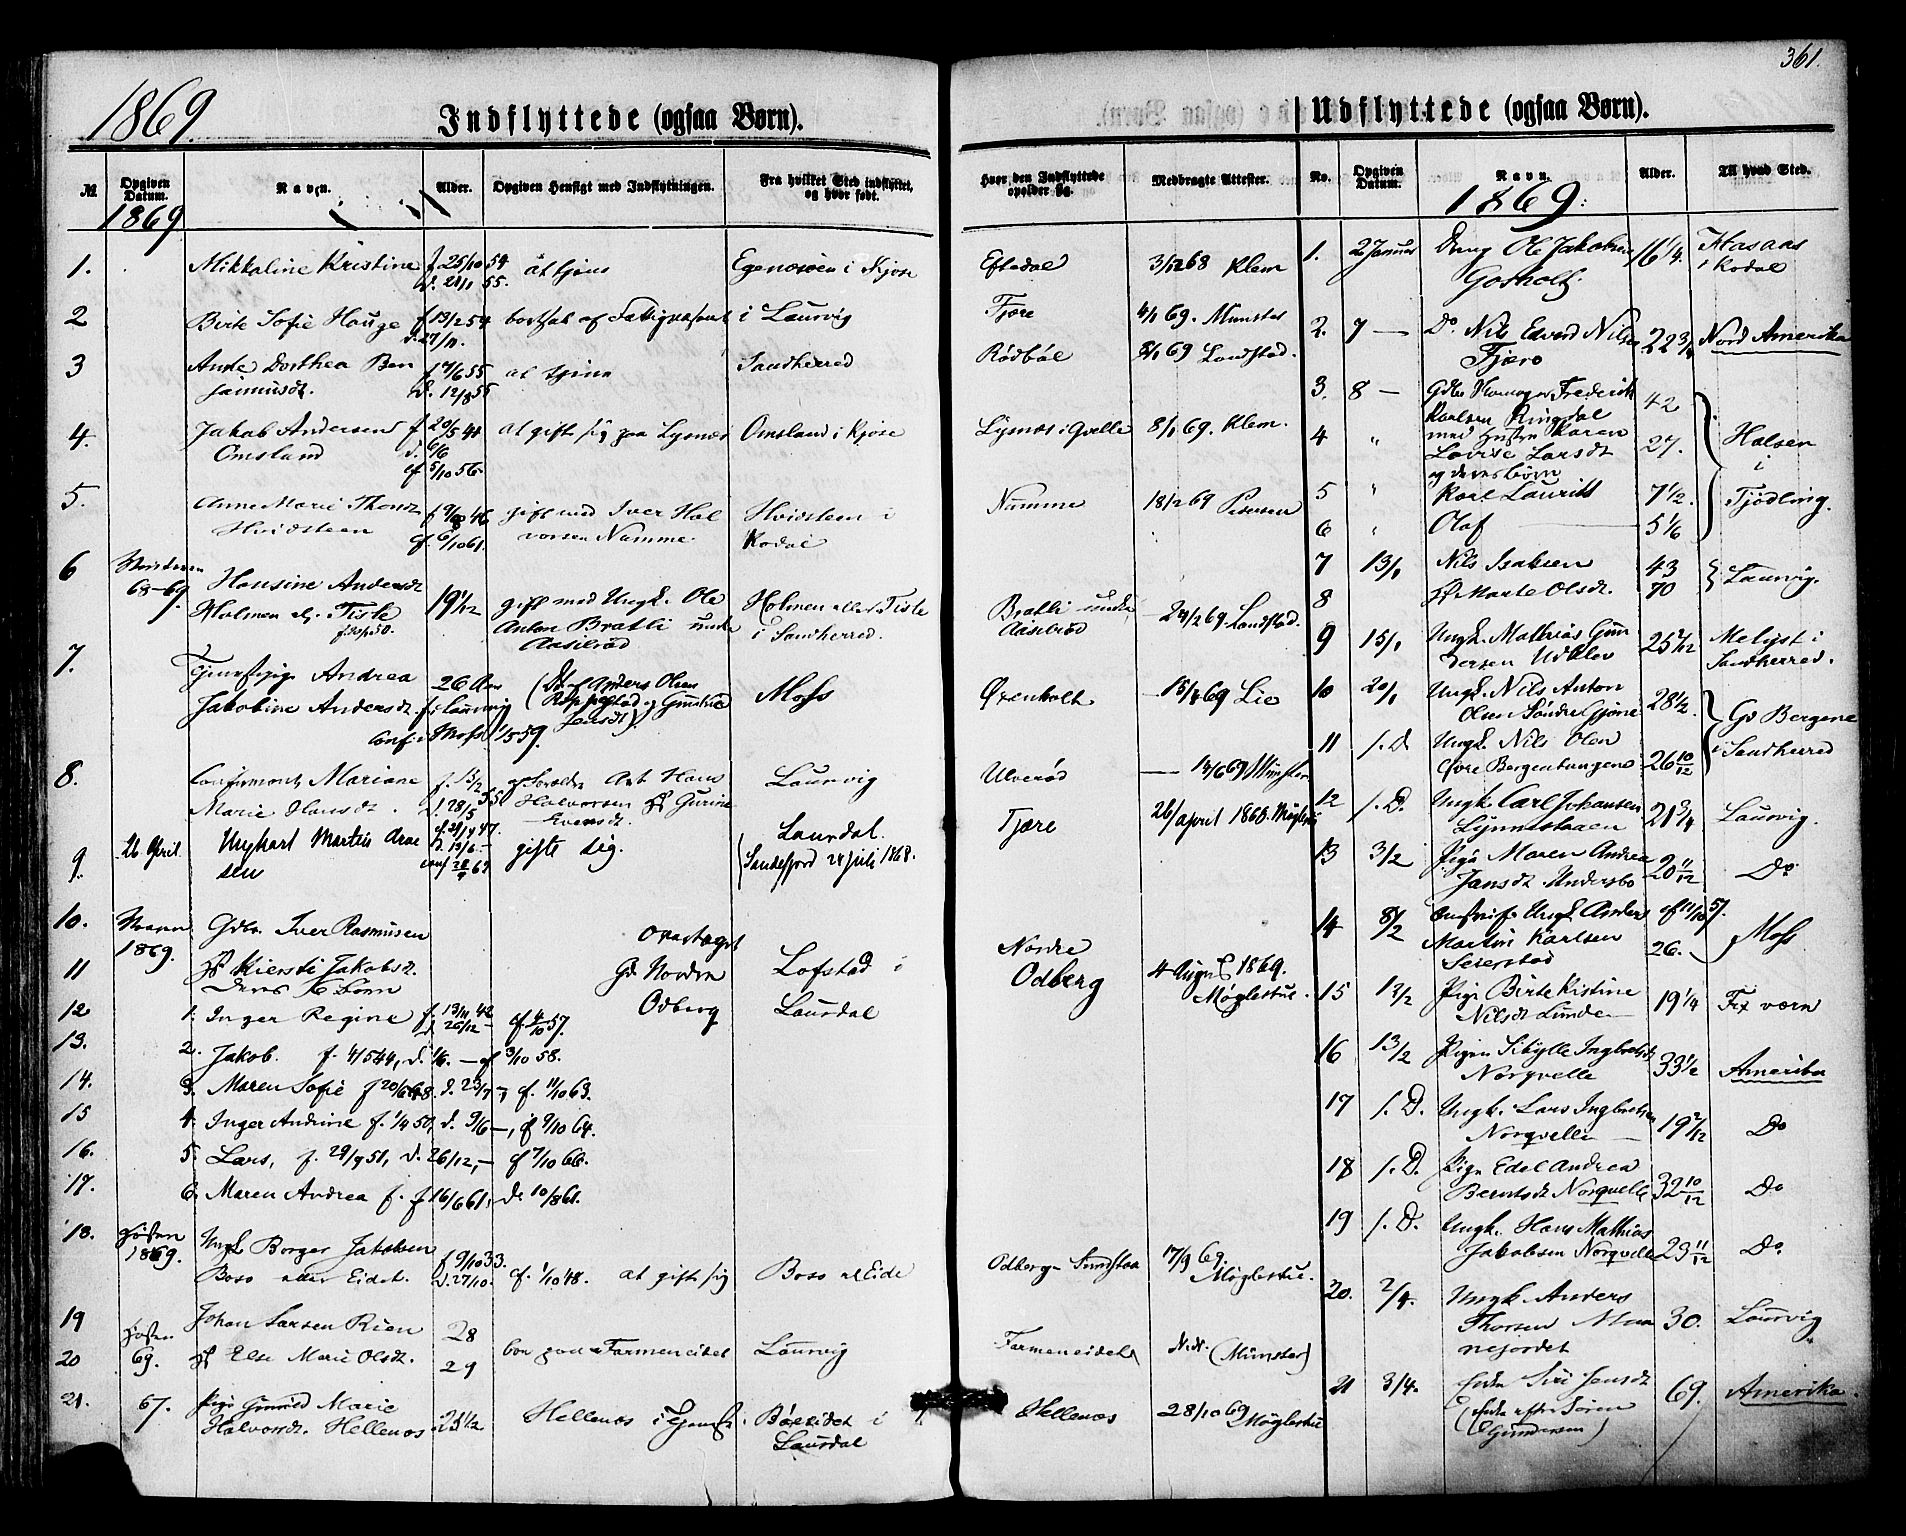 361.
1869.
Indflyttede (ogsaa Børn).
№ Opgiven Datum. Navn. Alder. Opgiven Hensigt med Indflytningen. Fra hvilket Sted indflyttet, og hvor født. Hvor den Indflyttede opholder sig. Medbragte Attester.
1869
1. Mikkaline Kristine f 25/10 54 at tjene Egenæsøen i Kjose Eftedal 3/12 68 Klem
d. 21/1 55.
2 Berte Sofie Hauge f 13/2 54 bortsat af Fattigvæsenet i Laurvig Fjære 4/1 69. Munster
d. 27/11.
3 Ande Dorthea Ben f 17/6 55 at tjene Sandherred Rødbøl 8/1 69 Landstad.
jaminsdt. d. 12/8 55
4. Jakob Andersen f 20/5 41 at gifte sig paa Lysnæs Omsland i Kjose Lysnæs i Qvelle 8/1 69. Klem.
Omsland d. 6/6
cf 5/10 56.
5. Anne Marie Thorsdt gift med Iver Hal Hvidsteen i Numme 18/2 69 Petersen
Hvidsteen cf. 6/10 61. vorsen Numme. Kodal
6 68-69. Hansine Andersdt
Holmen elr. Tiste 19 1/12 gift med Ungk. Ole Holmen eller Tiste Bratli under 24/2 69. Landstad.
Anton Bratli under i Sandherred. Aasebrød
Aasebrød
7. Andrea 26 Aar (D. af Anders Olsen Moss Ørenholt 15/4 69 Lie
Jakobine Andersdt. f. i Laurvig
Conf. i Moss 1/5 59.
8. Confirmant Mariane f. 15/2 Laurvig Ulverød 14/6 69 Münster
Marie Hansdt. d. 28/5 55 Halvorsen Gurine
Evensdt.
9. 26 April. Ungkarl Martin Arne f. 21/4 47. gifte sig. Laurdal. Tjære 26/april 1868. Møglestue
sen Sandefjord 28 juli 1868.
10. 1869. Gdbr. Iver Rasmusen overtaget Nordre
11 H Kiersti Jakobsdt. Gd Nordre Lofstad i Odberg 4 August 1869.
Deres Børn Odberg Laurdal Møglestue.
12 1. Inger Regine f. 13/11 42 cf. 4/10 57.
d. 26/12 -
13. 2. Jakob. f. 4/5 44, d. 1/6. - cf 3/10 58.
14. 3. Maren Sofie f 20/6 48. d. 23/7 -, cf. 11/10 63.
15 4. Inger Andrine f. 1/4 50, d. 9/6 -, cf 9/10 64.
16. 5. Lars, f. 29/9 51, d. 26/12, - cf 7/10 66.
17. 6. Maren Andrea f. 16/6 61, d. 10/8 61.
18. Høsten Ungk Borger Jakobsen f 9/10 33.
1869. Boso eller Eidet. d. 27/10. cf. 1/10 48. at gifte sig Boso el Eide Odberg Sundstaa 17/9 69. Møglestue.
19 Høsten Johan Larsen Rien 28
20 69. H Else Marie Olsdt. 29 bor paa Farmeneidet Laurvig Farmeneidet (Münster)
21. 67. Pige Gunnild Marie
Halvorsdt. Hellenæs 23 1/2 Hellenæs i Tjeneste Bøkeidet i Hellenæs 28/10 69 Møglestue
Laurdal
Udflyttede (ogsaa Børn).
No. Opgiven Datum. Navn. Alder. Til hvad Sted.
1869.
1. 2 Januar Dreng Ole Jakobsen 16 1/4. Hasaas
Gosholt. i Kodal
2. 7 — Do Nils Edvard Nilsen 22 3/4 Nord Amerika
Fjære
3. 8 — Frederik 42
Karlsen Ringdal
4 " med Hustru Karen 27. Halsen
Lovise Larsdt i
og deres børn
5 " Karl Laurits 7 1/2 Tjødling.
6 " Olaf 5 1/6
7 13/1 Nils Isaksen 43 Laurvig.
8 H Marte Olsdt. 70
9 15/1 Ungk. Mathias Gun 25 2/12 Melyst i
dersen Udklev Sandherred.
10 20/1 Ungk. Nils Anton 28 1/2. Gd Bergene
Olsen Søndre Gjone
11 s. D. Ungk. Nils Olsen 26 10/12 i Sandherred
Øvre Bergen
12 s. D. Ungk. Carl Johansen 21 3/4 Laurvig.
13 3/2 Pige Maren Andrea 20 11/12 Do
Jansdt Undersbo
14 8/2 Ungk. Anders cf 11/10 57.
Martin Karlsen 26. Moss
Seierstad
15 13/2 Pige Birte Kistine 19 1/4
Nilsdt Lunde
16 13/2 Pigen Sibylle Ingbretsdt 33 1/2 Amerika
Norqvelle
17 s. D. Ungk. Lars Ingbretsen 19 2/12 Do
Norqvelle
18 s. D. Pige Edel Andrea
Berntsdt Norqvelle 32 10/12 Do
19 s. D. Ungk. Hans Mathias
Jakobsen Norqvelle 23 11/12 Do
20. 2/4. Ungk. Anders
Thorsen 30. Laurvig
nejordet
21 3/4. Enke Siri Jensdt 69. Amerika.
(Enke efter Søren
Gundersen)